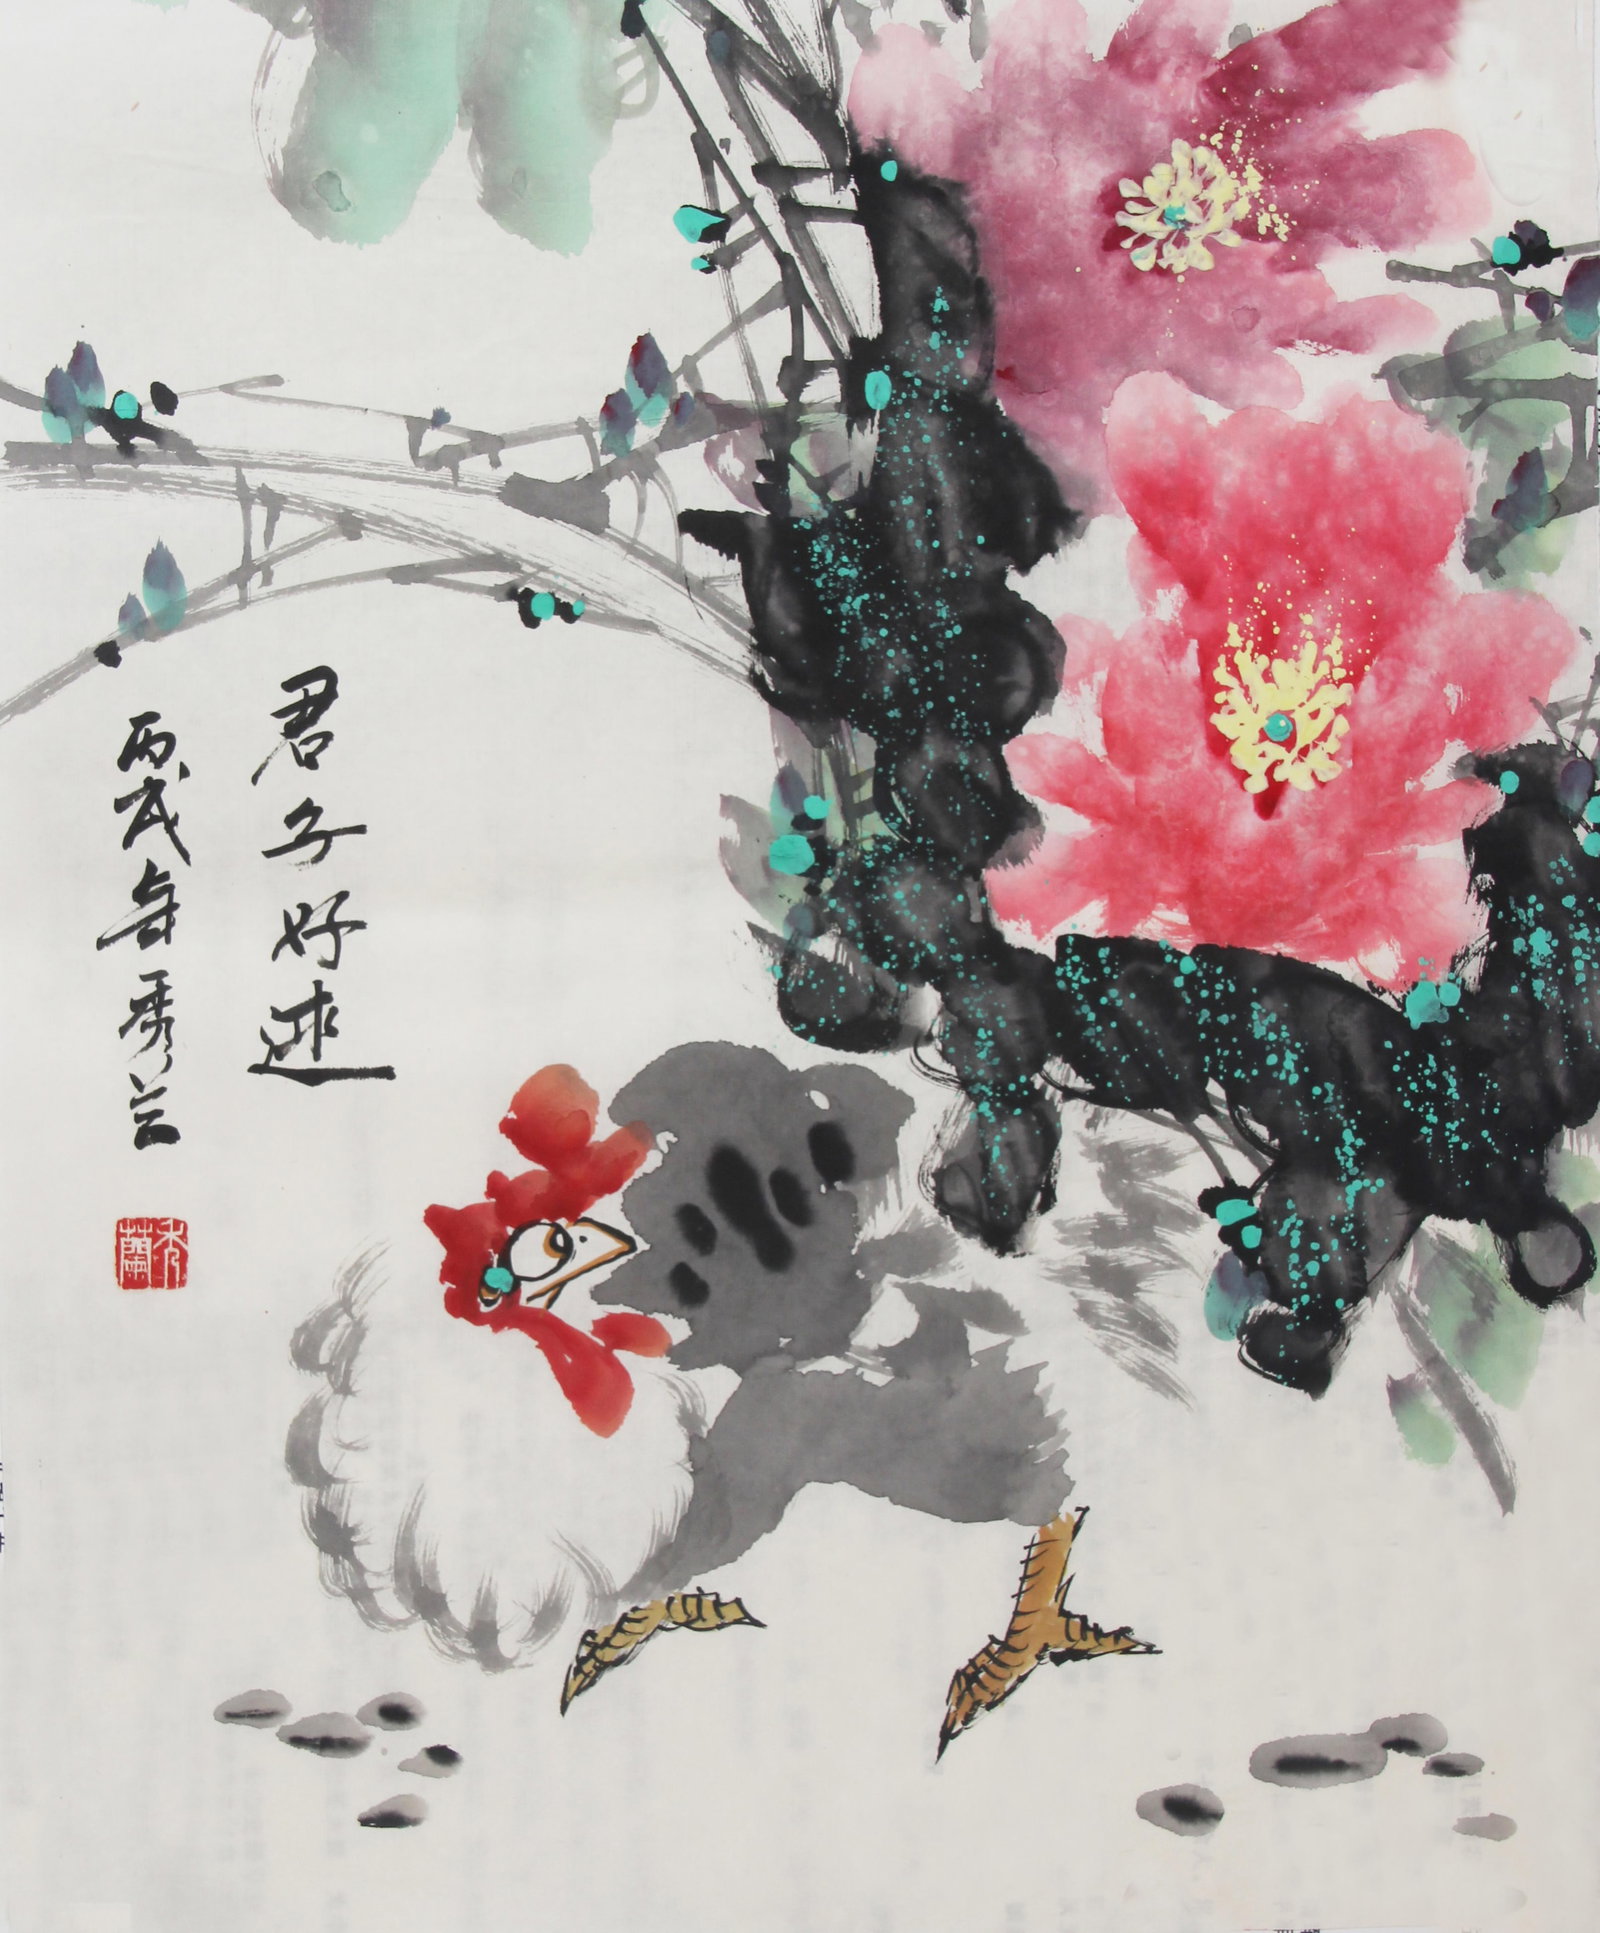 君子好逑
丙戌年秀兰
秀蘭